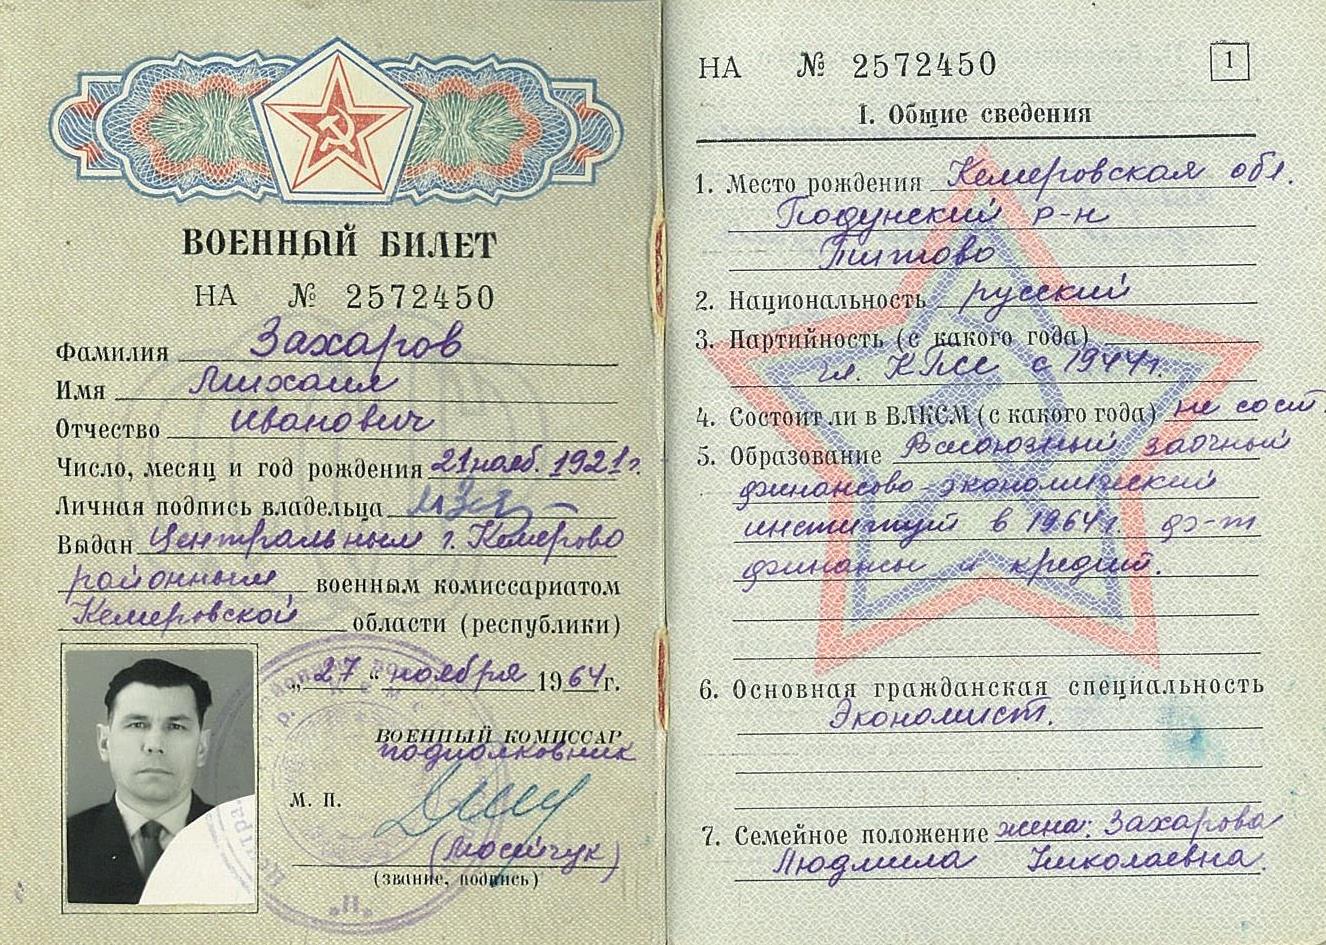 ВОЕННЫЙ БИЛЕТ
НА № 2572450
Фамилия Захаров
Имя Михаил
Отчество Иванович
Число, месяц и год рождения 21 нояб. 1921 г.
Личная подпись владельца
Выдан Центральным г. Кемерово
районным военным комиссариатом
Кемеровской области (республики)
„27“ ноября 1964 г.
ВОЕННЫЙ КОМИССАР
подполковник
М. П.
(Мосийчук)
(звание, подпись)
НА № 2572450
1
I. Общие сведения
1. Место рождения Кемеровская обл.
Подунский р-н
Титово
2. Национальность русский
3. Партийность (с какого года)
чл. КПСС с 1944 г.
4. Состоит ли в ВЛКСМ (с какого года) не сост.
5. Образование Всесоюзный заочный
финансово-экономический
институт в 1964 г. ф-т
финансы и кредит.
6. Основная гражданская специальность
Экономист.
7. Семейное положение жена: Захарова
Людмила Николаевна.